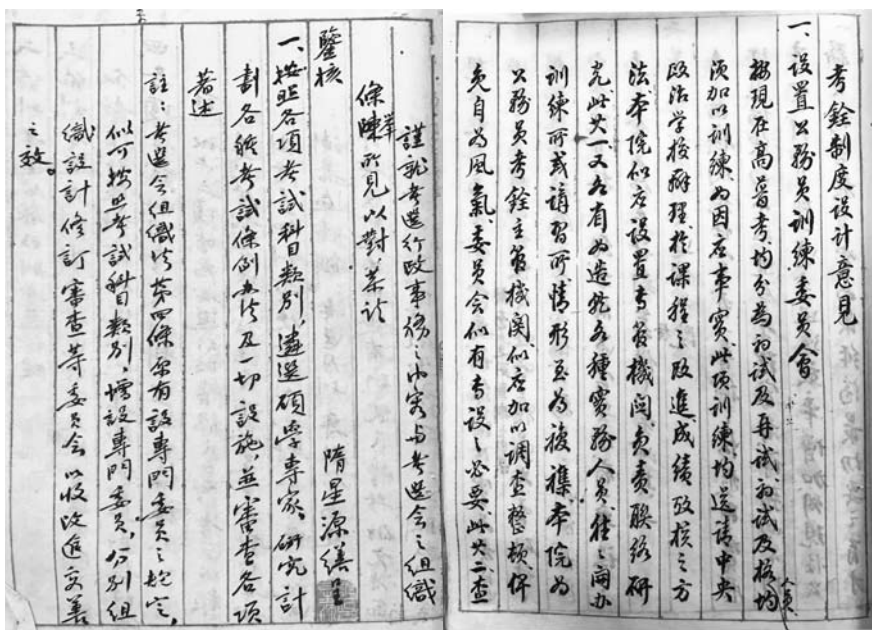 考銓制度設計意見
一、設置公務員訓練委員會
按現在高普考均分為初試及再試初試及格
人員均
須加以訓練為因在事實此項訓練均送請中央
政治学校辦理於課程之改進成績考核之方
法本院似應設置专管機関負責聯絡研
究此其一又各省為造就各種實務人員往之開办
訓練所或講習所情形至為複雜本院為
公務員考銓主管機関似應加以調查整頓俾
免自為風氣委員会似有专設之必要此其二查
謹就考選行政事務之內容与考選会之組織
條陳所見以對 茶詢
鑒核
隋星源謹呈
一、按照各項考試科目類別，遴選碩學專家，研究計
劃各種考試條例办法及一切設施，並審查各項
著述
註：考選会組織法第四條原有設專門委員之規定，
似可按照考試科目類別，增設專門委員，分別組
織設計修訂審查等委員会以收改進完善
之效。